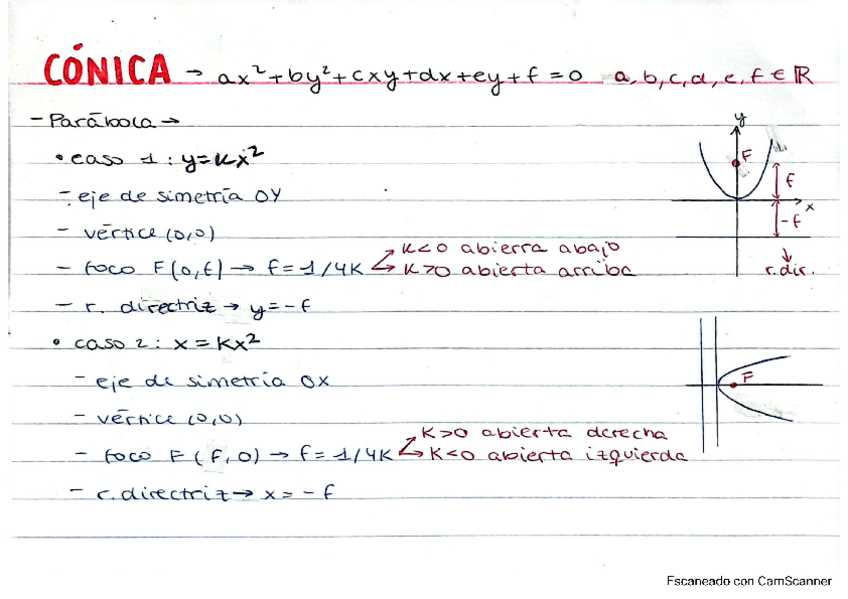 CÓNICA → ax²+by²+cxy+dx+ey+f=0 a,b,c,d,e,f∈ℝ
- Parábola →
• caso 1: y=kx²
- eje de simetría OY
- vértice (0,0)
- foco F(0,f) → f=1/4K
K<0 abierra abajo
K>0 abierta arriba
- r. directriz → y=-f
• caso 2: x=Kx²
- eje de simetría OX
- vértice (0,0)
- foco F(f,0) → f=1/4K
K>0 abierta derecha
K<0 abierta izquierda
- r.directriz → x=-f
y
F
f
x
-f
r.dir.
F
Escaneado con CamScanner